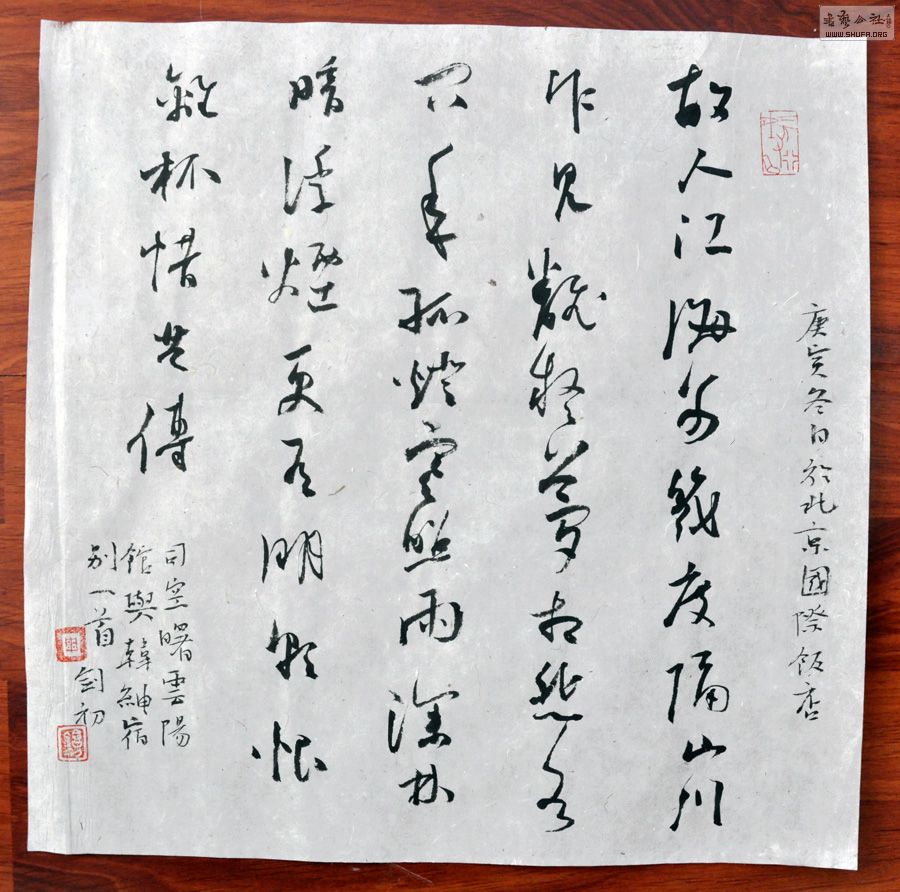 書藝公社
WWW.SHUFA.ORG
庚寅冬日於北京國際飯店
故人江海别幾度隔山川
乍見翻疑夢相悲各
問年孤燈寒照雨深竹
暗浮煙更有明朝恨
離杯惜共傳
司空曙雲陽
館與韓紳宿
别一首
劍初